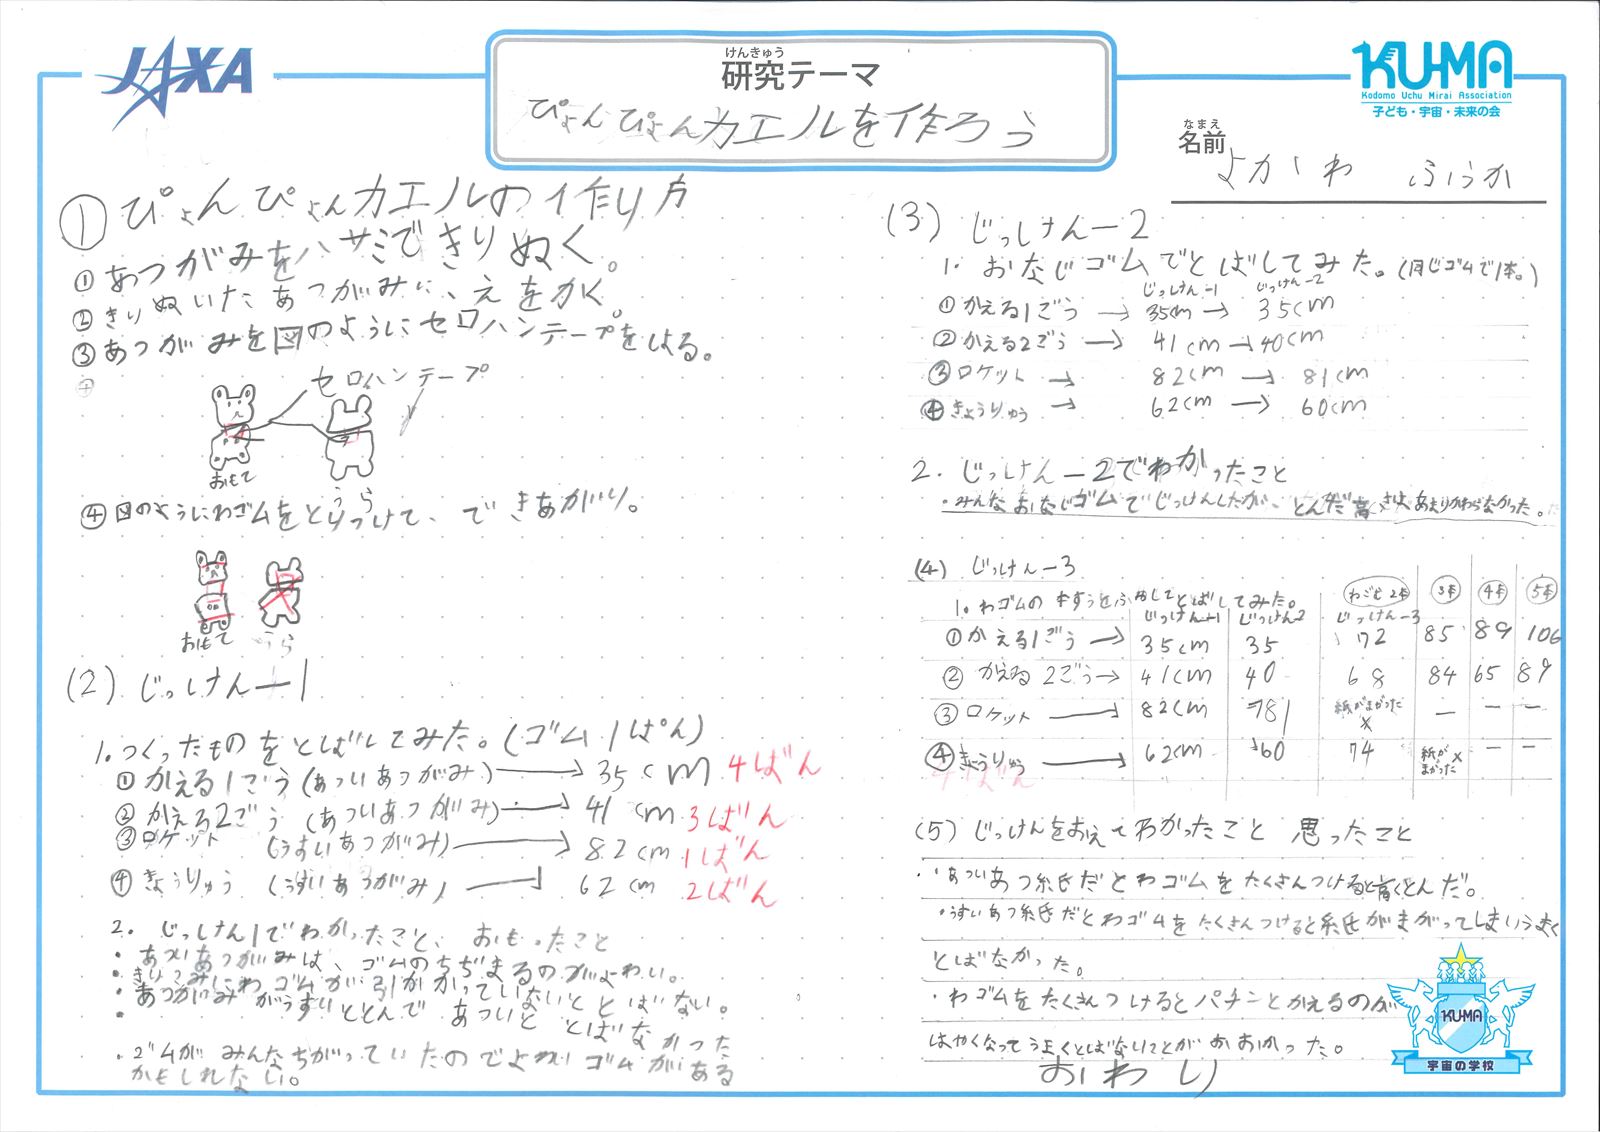 JAXA
けんきゅう
研究テーマ
ぴょんぴょんカエルを作ろう
KU-MA
Kodomo Uchu Mirai Association
子ども・宇宙・未来の会
なまえ
名前
よかわ ふうか
① ぴょんぴょんカエルの作り方
①あつがみをハサミできりぬく。
②きりぬいたあつがみに、えをかく。
③あつがみを図のようにセロハンテープをはる。
セロハンテープ
おもて
うら
④図のようにわゴムをとりつけて、できあがり。
おもて うら
(2) じっけんー1
1.つくったものをとばしてみた。(ゴム1ぱん)
①かえる1ごう(あついあつがみ)→35cm 4ばん
②かえる2ごう(あついあつがみ)→41cm 3ばん
③ロケット (うすいあつがみ)→82cm 1ばん
④きょうりゅう (うすいあつがみ)→62cm 2ばん
2. じっけん1でわかったこと、おもったこと
・あついあつがみは、ゴムのちぢまるのがよわい。
・きりこみにわゴムが引がかっていないととばない。
・あつがみがうすいととんで あついと とばなかった
・ゴムがみんなちがっていたのでよわいゴムがある
かもしれない。
(3) じっけんー2
1. おなじゴムでとばしてみた。(同じゴムで1本。)
じっけんー1 じっけんー2
①かえる1ごう → 35cm → 35cm
②かえる2ごう → 41cm → 40cm
③ロケット → 82cm → 81cm
④きょうりゅう → 62cm → 60cm
2. じっけんー2でわかったこと
・みんなおなじゴムでじっけんしたが、とんだ高さはあまりかわらなかった。
(4) じっけんー3
1.わゴムの本すうをふやしてとばしてみた。
じっけんー1 じっけん2 わごむ2本 じっけんー3 3本 4本 5本
①かえる1ごう → 35cm 35 72 85 89 106
②かえる2ごう → 41cm 40 68 84 65 89
③ロケット → 82cm 81 紙がまがった × ー ー ー
④きょうりゅう → 62cm 60 74 紙がまがった × ー ー
(5) じっけんをおえてわかったこと 思ったこと
・あついあつ紙だとわゴムをたくさんつけると高くとんだ。
・うすいあつ紙だとわゴムをたくさんつけると紙がまがってしまいうまく
とばなかった。
・わゴムをたくさんつけるとパチンとかえるのが
はやくなってうまくとばないことがおおかった。
おわり
KU-MA
宇宙の学校